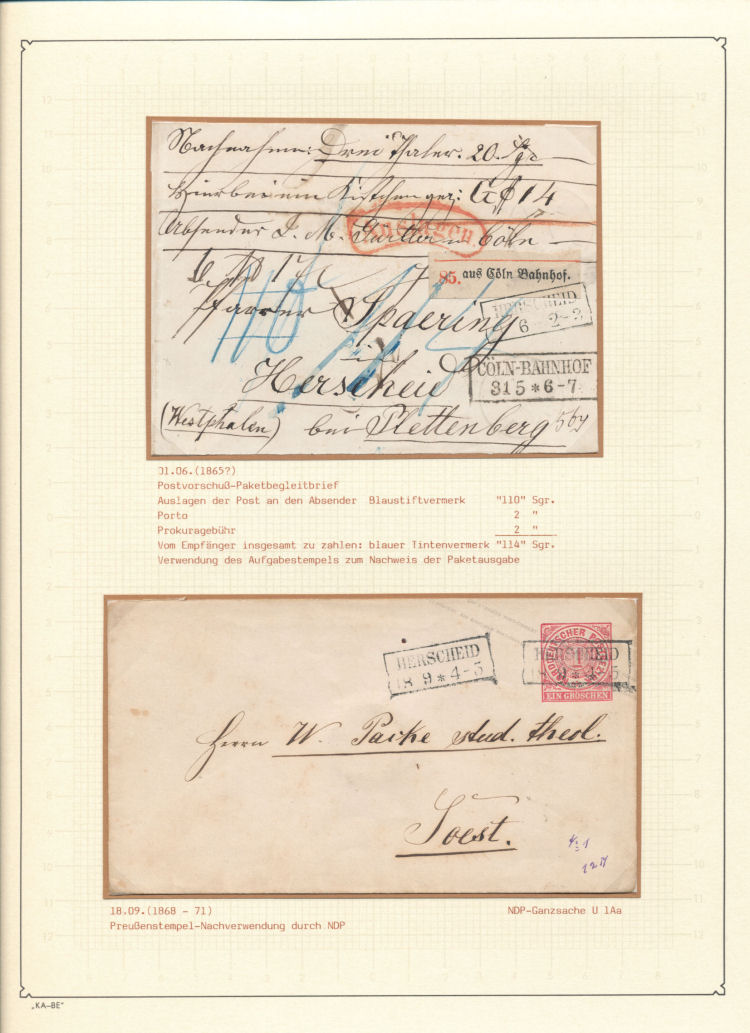 Nachnahme: Drei Thaler. 20. Sgr
Hierbei ein Kistchen gez: G # 14
Absender J. M. Gurtler in Cöln
Auslagen
85. aus Cöln Bahnhof.
Pfarrer Spaering
HERSCHEID
6 2-3
in
Herscheid
CÖLN-BAHNHOF
31 5 * 6-7
(Westphalen) bei Plettenberg
01.06.(1865?)
Postvorschuß-Paketbegleitbrief
Auslagen der Post an den Absender Blaustiftvermerk "110" Sgr.
Porto 2 "
Prokuragebühr 2 "
Vom Empfänger insgesamt zu zahlen: blauer Tintenvermerk "114" Sgr.
Verwendung des Aufgabestempels zum Nachweis der Paketausgabe
HERSCHEID
18 9 * 4-5
NORDDEUTSCHER POSTBEZIRK
HERSCHEID
18 9 * 4-5
EIN GROSCHEN
Herrn W. Packe stud. theol.
Soest.
18.09.(1868 - 71) NDP-Ganzsache U 1Aa
Preußenstempel-Nachverwendung durch NDP
„KA-BE"